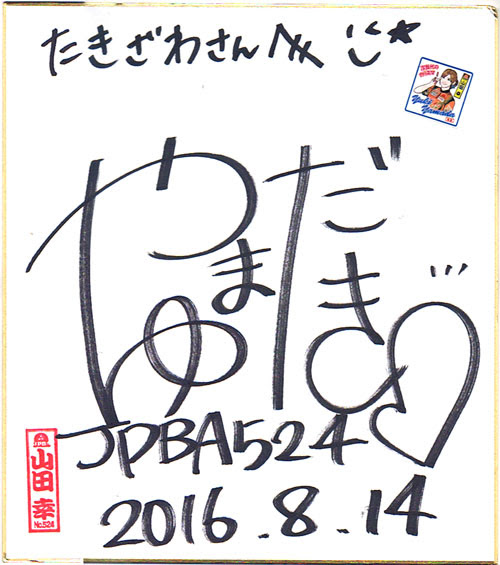 たきざわさんへ
Yuki
Yamada
やまだ
ゆき
JPBA524
2016.8.14
JPBA
山田 幸
No.524